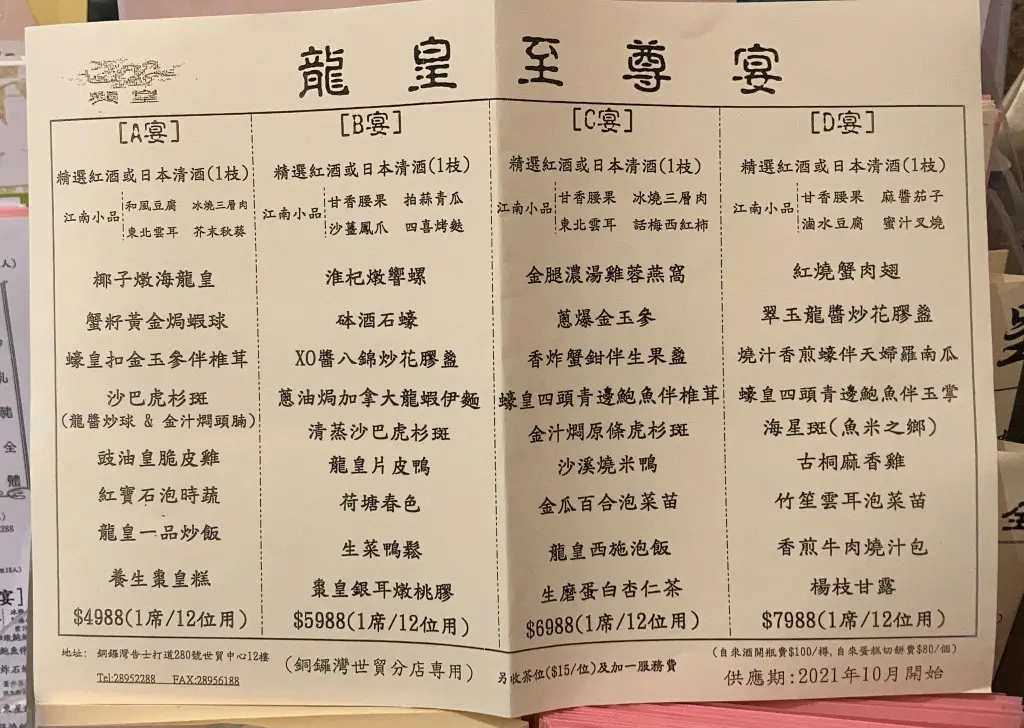 龍皇至尊宴
龍皇
[A宴]
精選紅酒或日本清酒(1枝)
江南小品
和風豆腐 冰燒三層肉
東北雲耳 芥末秋葵
椰子燉海龍皇
蟹籽黃金焗蝦球
蠔皇扣金玉參伴椎茸
沙巴虎杉斑
(龍醬炒球 & 金汁燜頭腩)
豉油皇脆皮雞
紅寶石泡時蔬
龍皇一品炒飯
養生棗皇糕
$4988(1席/12位用)
[B宴]
精選紅酒或日本清酒(1枝)
江南小品
甘香腰果 拍蒜青瓜
沙薑鳳爪 四喜烤麩
淮杞燉響螺
砵酒石蠔
XO醬八錦炒花膠盞
蔥油焗加拿大龍蝦伊麵
清蒸沙巴虎杉斑
龍皇片皮鴨
荷塘春色
生菜鴨鬆
棗皇銀耳燉桃膠
$5988(1席/12位用)
[C宴]
精選紅酒或日本清酒(1枝)
江南小品
甘香腰果 冰燒三層肉
東北雲耳 話梅西紅柿
金腿濃湯雞蓉燕窩
蔥爆金玉參
香炸蟹鉗伴生果盞
蠔皇四頭青邊鮑魚伴椎茸
金汁燜原條虎杉斑
沙溪燒米鴨
金瓜百合泡菜苗
龍皇西施泡飯
生磨蛋白杏仁茶
$6988(1席/12位用)
[D宴]
精選紅酒或日本清酒(1枝)
江南小品
甘香腰果 麻醬茄子
滷水豆腐 蜜汁叉燒
紅燒蟹肉翅
翠玉龍醬炒花膠盞
燒汁香煎蠔伴天婦羅南瓜
蠔皇四頭青邊鮑魚伴玉掌
海星斑(魚米之鄉)
古桐麻香雞
竹笙雲耳泡菜苗
香煎牛肉燒汁包
楊枝甘露
$7988(1席/12位用)
地址: 銅鑼灣告士打道280號世貿中心12樓
Tel:28952288 FAX:28956188
(銅鑼灣世貿分店專用)
另收茶位($15/位)及加一服務費
(自來酒開瓶費$100/樽,自來蛋糕切餅費$80/個)
供應期:2021年10月開始